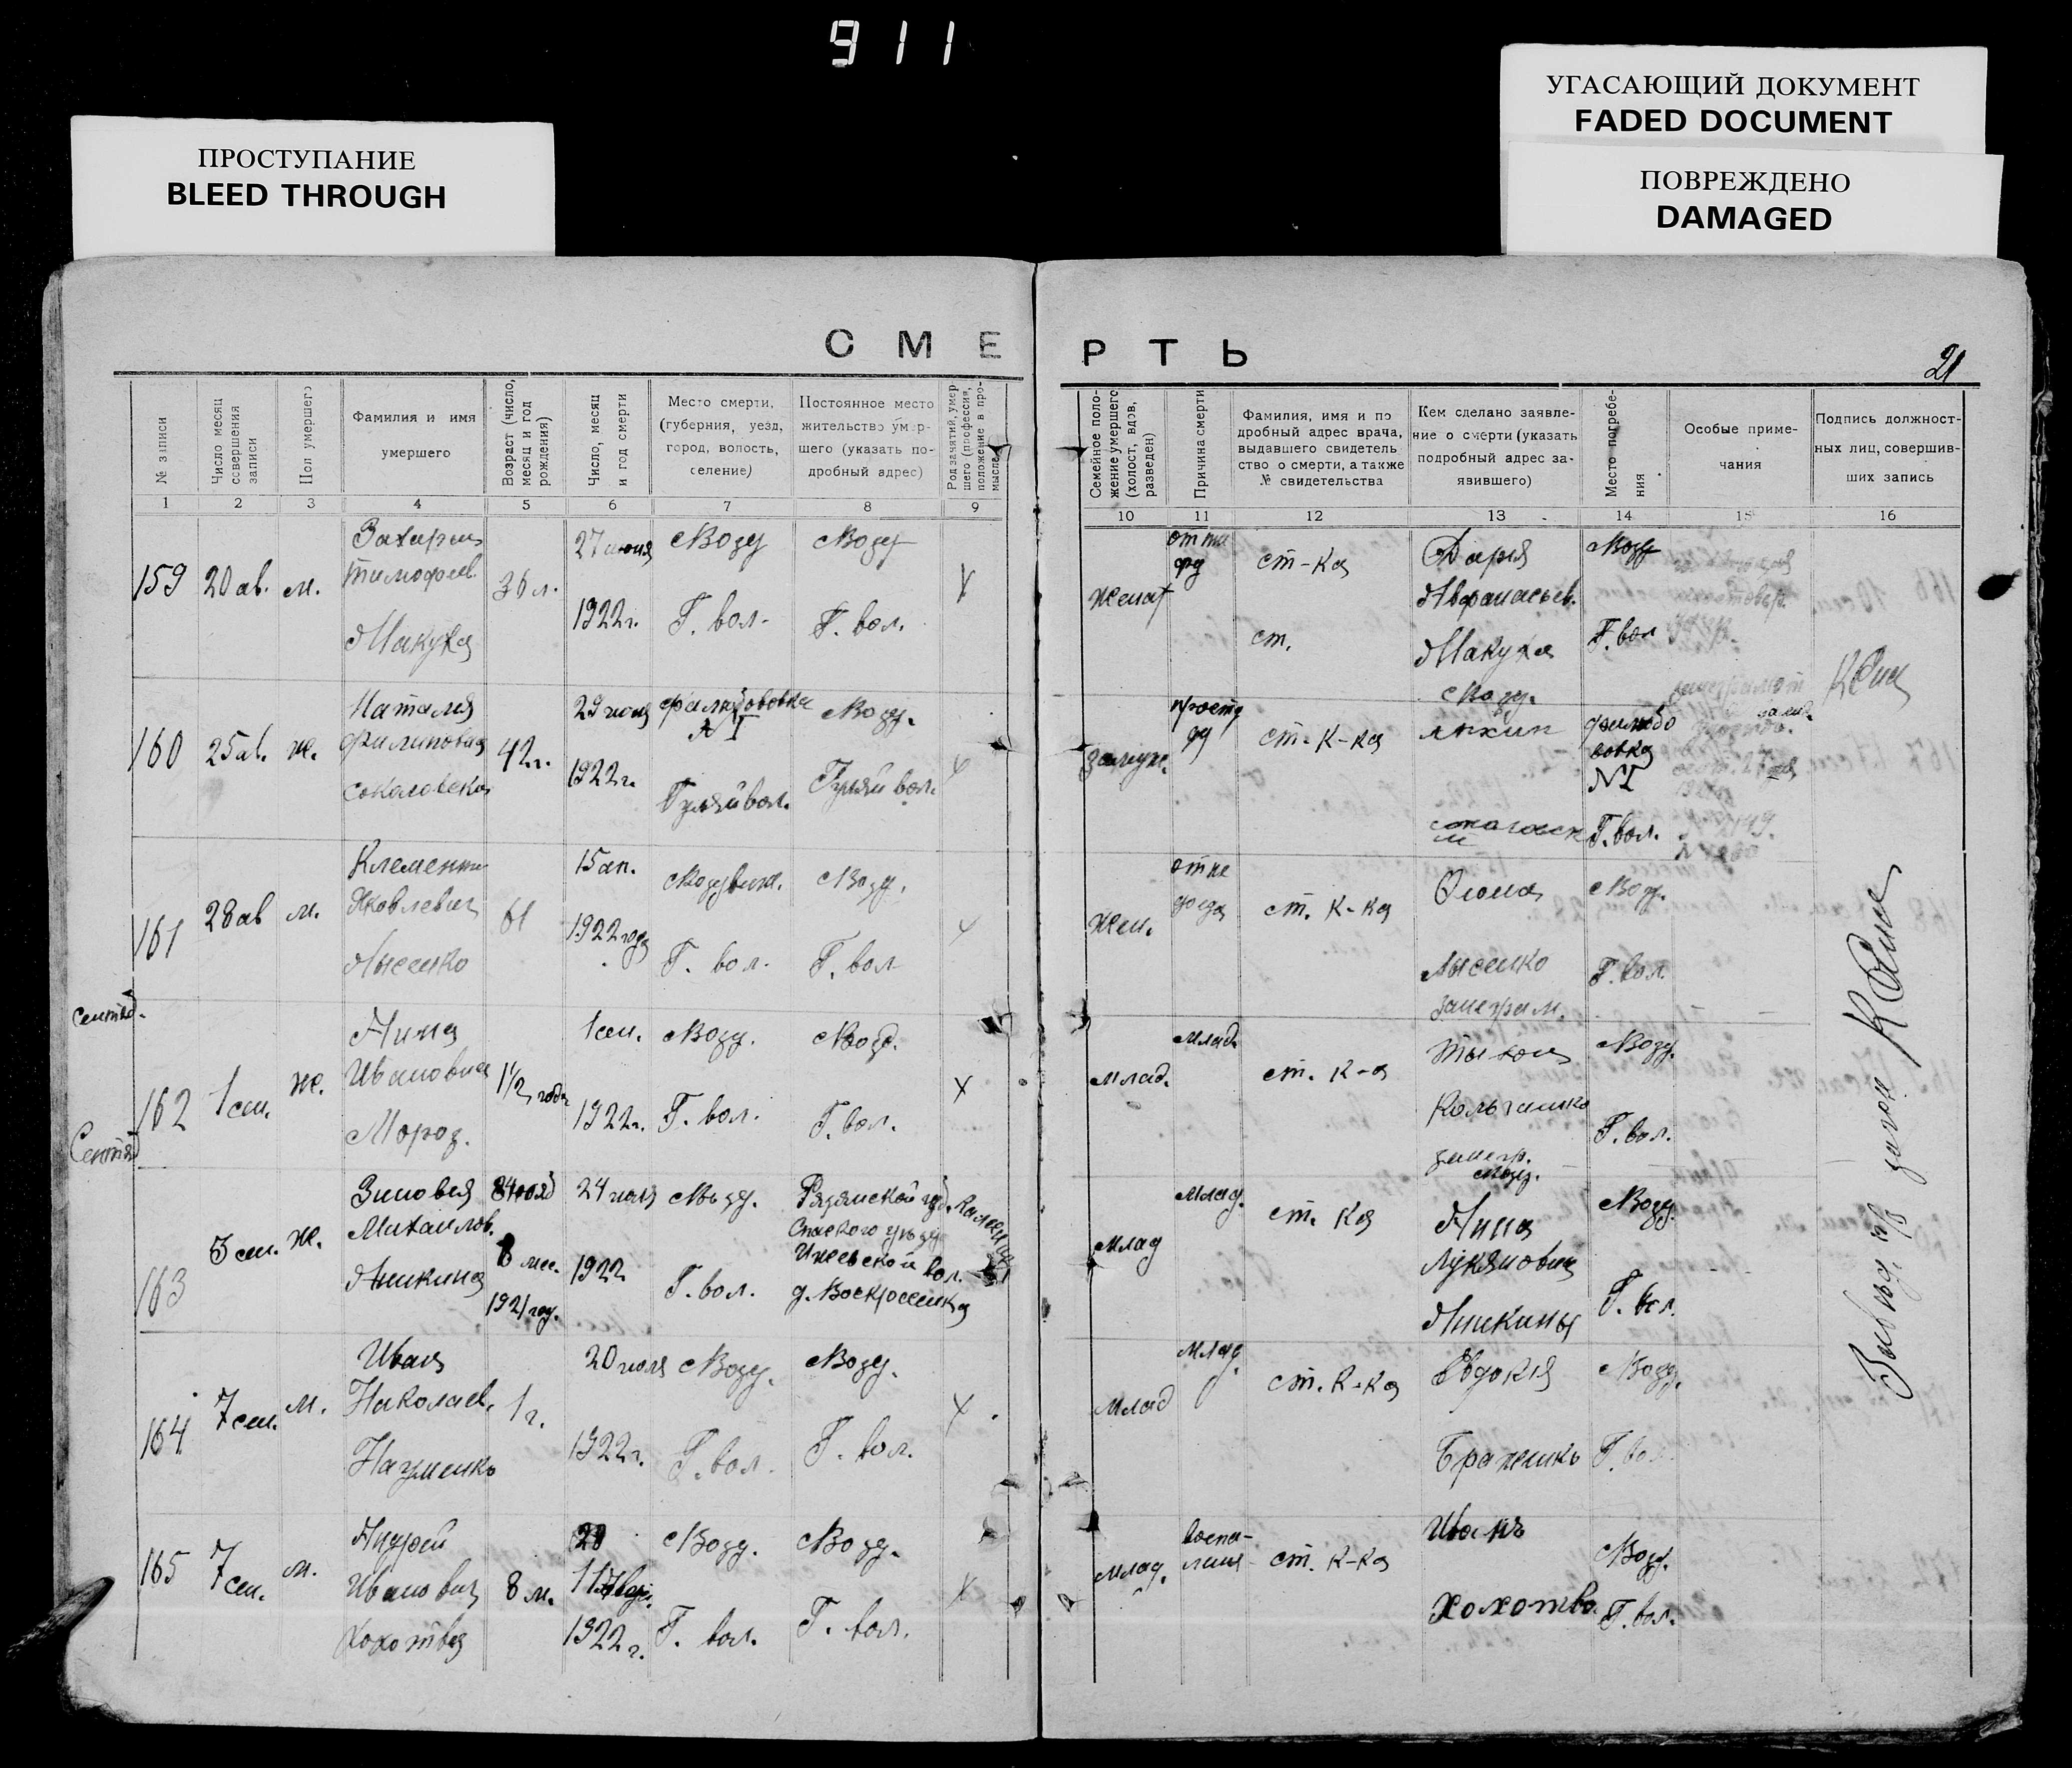 911
ПРОСТУПАНИЕ
BLEED THROUGH
УГАСАЮЩИЙ ДОКУМЕНТ
FADED DOCUMENT
ПОВРЕЖДЕНО
DAMAGED
СМЕРТЬ
21
№ записи
Число месяц совершения записи
Пол умершего
Фамилия и имя умершего
Возраст (число, месяц и год рождения)
Число, месяц и год смерти
Место смерти, (губерния, уезд, город, волость, селение)
Постоянное место жительство умершего (указать подробный адрес)
Род занятий умершего (профессия, положение в промысле)
Семейное положение умершего (холост, вдов, разведен)
Причина смерти
Фамилия, имя и подробный адрес врача, выдавшего свидетельство о смерти, а также № свидетельства
Кем сделано заявление о смерти (указать подробный адрес заявившего)
Место погребения
Особые примечания
Подпись должностных лиц, совершивших запись
1 2 3 4 5 6 7 8 9 10 11 12 13 14 15 16
159 20 ав. м.
Тимофеев.
Макуха
36 л.
27 июня
1922 г.
Возд
Г. вол.
Возд
Г. вол.
х
женат
ст-ка
ст.
Дария
Афанасьев.
Макуха
Возд.
Возд
Г. вол
160 25 ав. ж.
Наталия
Филиповна
Соколовская
42 г.
29 июня
1922 г.
№ I
Гуляй вол.
Возд.
Гуляй вол.
х
замуж.
ст-к-ка
№ I
Г. вол.
161 28 ав м.
Клементи
Яковлевич
Лысенко
61
15 ап.
1922 года
Воздвиж.
Г. вол.
Возд.
Г. вол
х
жен.
ст. к-ка
Фома
Лысенко
Возд.
Г. вол.
Сентяб.
162 1 сен. ж.
Нина
Ивановна
Мороз.
1 1/2 года
1 сен.
1922 г.
Возд.
Г. вол.
Возд.
Г. вол.
х
Млад.
Млад.
ст. к-а
Возд.
Возд.
Г. вол.
Сентяб
163 3 сен. ж.
Зиновия
Михаилов.
Аникина
8 мес.
1921 год.
24 июля
1922
Возд.
Г. вол.
Рязанской губ.
Спаского уезда
Ижевской вол.
д. Воскросенка
Млад
Млад.
ст. ка
Анна
Лукяновна
Аникины
Возд.
Г. вол.
164 7 сен. м.
Иван
Николаев.
Науменко
1 г.
20 июля
1922 г.
Возд.
Г. вол.
Возд.
Г. вол.
х
Млад
Млад.
ст. к-ка
Евдокия
Возд.
Г. вол.
165 7 сен. м.
Андрей
Иванович
Хохотва
8 м.
1922 г.
Возд.
Г. вол.
Возд.
Г. вол.
х
Млад.
воспаления
ст. к-ка
Иванъ
Хохотва.
Возд.
Г. вол.